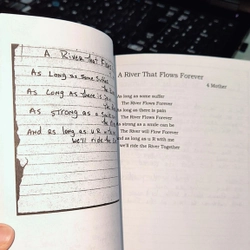 A River That Flows
As Long as some suffer
As Long as there is pain
As strong as a smile
And as long as u R
we'll ride the
A River That Flows Forever
4 Mother
As long as some suffer
The River Flows Forever
As long as there is pain
The River Flows Forever
As strong as a smile can be
The River will Flow Forever
And as long as u R with me
we'll ride the River Together